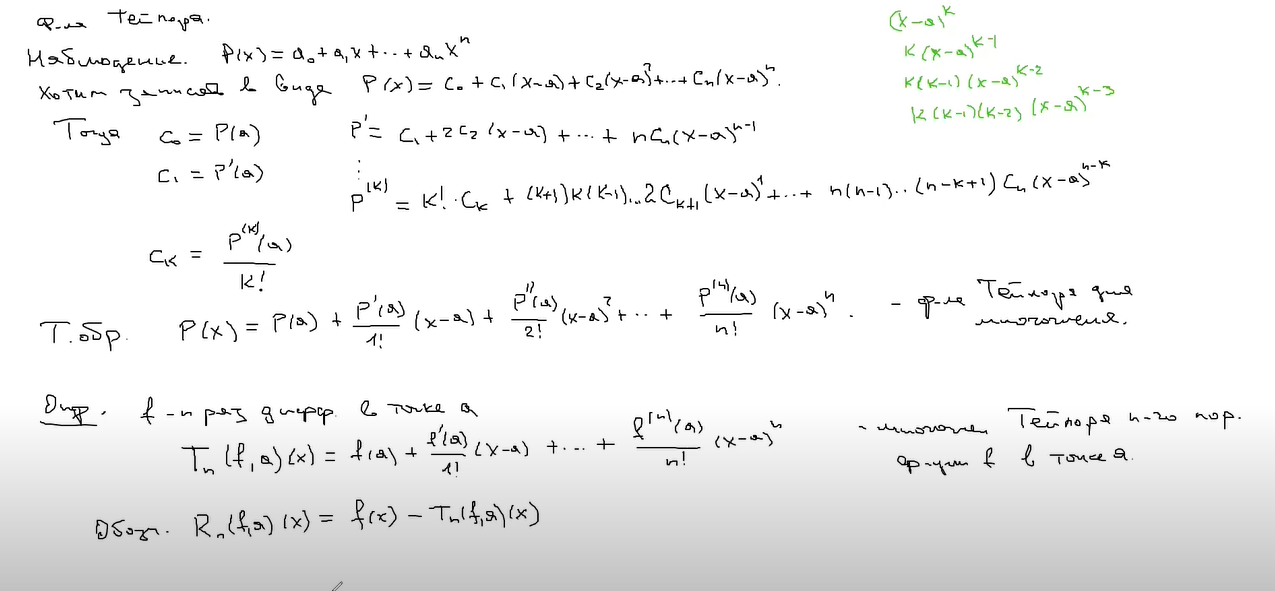 Ф-ла Тейлора.
Наблюдение. P(x) = a₀ + a₁x + ... + aₙxⁿ
Хотим записать в виде P(x) = c₀ + c₁(x-a) + c₂(x-a)² + ... + cₙ(x-a)ⁿ.
(x-a)^k
k(x-a)^{k-1}
k(k-1)(x-a)^{k-2}
k(k-1)(k-2)(x-a)^{k-3}
Тогда c₀ = P(a) P' = c₁ + 2c₂(x-a) + ... + ncₙ(x-a)^{n-1}
c₁ = P'(a) ⋮
P^{(k)} = k!·c_k + (k+1)k(k-1)...2c_{k+1}(x-a)¹ + ... + n(n-1)...(n-k+1)cₙ(x-a)^{n-k}
c_k = P^{(k)}(a)/k!
Т.обр. P(x) = P(a) + P'(a)/1! (x-a) + P''(a)/2! (x-a)² + ... + P^{(n)}(a)/n! (x-a)ⁿ. - ф-ла Тейлора для
многочлена.
Опр. f - n раз дифф. в точке a
Tₙ(f,a)(x) = f(a) + f'(a)/1! (x-a) + ... + f^{(n)}(a)/n! (x-a)ⁿ - многочлен Тейлора n-го пор.
ф-ции f в точке a.
Обозн. Rₙ(f,a)(x) = f(x) - Tₙ(f,a)(x)